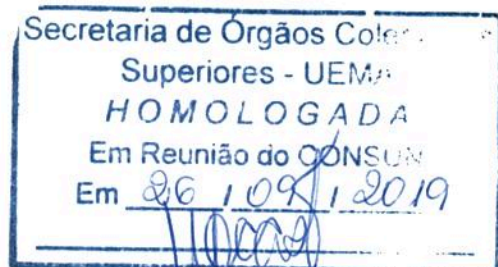 Secretaria de Órgãos
Superiores - UEMA
HOMOLOGADA
Em Reunião do CONSUN
Em 26 / 09 / 2019